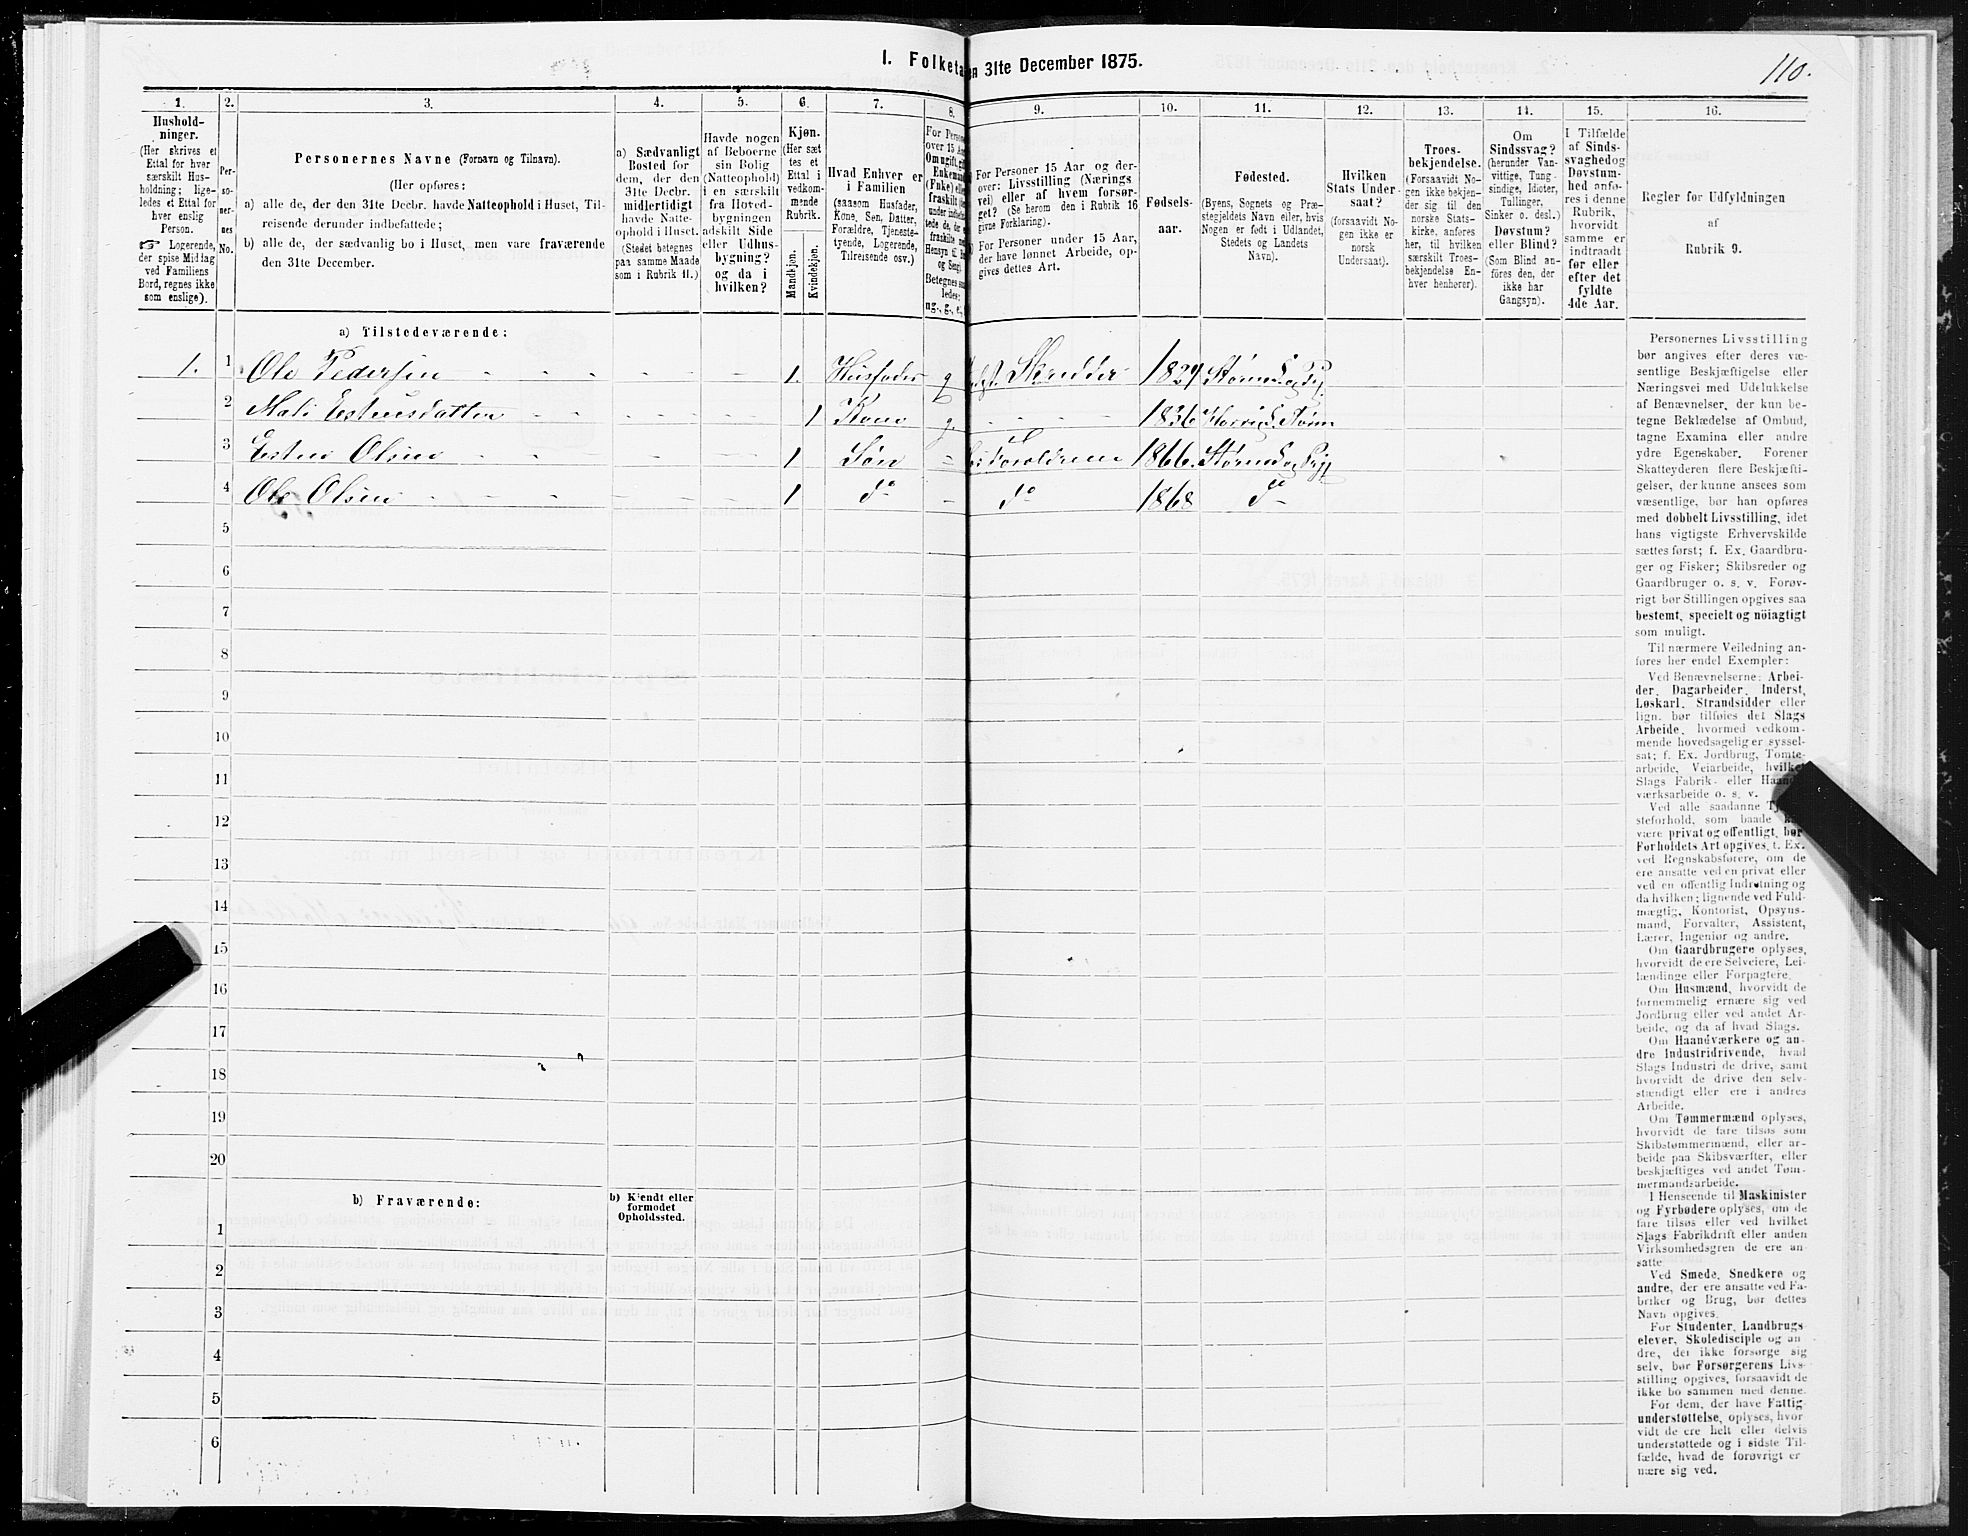 I. Folketa
en 31te December 1875.
110.
1.
2.
3.
4.
5.
6.
7.
8.
9.
10.
11.
12.
13.
14.
15.
16.
Hushold-
ninger.
(Her skrives et
Ettal for hver
særskilt Hus-
holdning; lige-
ledes et Ettal for
hver enslig
Person.
Logerende,
der spise Middag
ved Familiens
Bord, regnes ikke
som enslige).
Per-
so-
ner-
nes
No.
Personernes Navne (Fornavn og Tilnavn).
(Her opføres:
a) alle de, der den 31te Decbr. havde Natteophold i Huset, Til-
reisende derunder indbefattede;
b) alle de, der sædvanlig bo i Huset, men vare fraværende
den 31te December.
a) Sædvanligt
Bosted for
dem, der den
31te Decbr.
midlertidigt
havde Natte-
ophold i Huset.
(Stedet betegnes
paa samme Maade
som i Rubrik 11.)
Havde nogen
af Beboerne
sin Bolig
(Natteophold)
i en særskilt
fra Hoved-
bygningen
adskilt Side
eller Udhus-
bygning?
og da i
hvilken?
Kjøn.
(Her sæt
tes et
Ettal i
vedkom-
mende
Rubrik.
Mandkjøn.
Kvindekjøn.
Hvad Enhver er
i Familien
(saasom Husfader,
Kone, Søn, Datter,
Forældre, Tjeneste-
tyende, Logerende,
Tilreisende osv.)
For Perso
over 15 Aa
Om ugift, gif
Enkeman
(Enke) elle
fraskilt
For Personer 15 Aar og der-
over: Livsstilling (Nærings
vei) eller af hvem forsør-
get? (Se herom den i Rubrik 16
givne Forklaring).
For Personer under 15 Aar,
der have lønnet Arbeide, op-
gives dettes Art.
Fødsels-
aar.
Fødested.
(Byens, Sognets og Præ-
stegjeldets Navn eller, hvis
Nogen er født i Udlandet,
Stedets og Landets
Navn).
Hvilken
Stats Under-
saat?
(forsaavidt No-
gen ikke er
norsk
Undersaat).
Troes-
bekjendelse.
(Forsaavidt No-
gen ikke bekjen-
der sig til den
norske Stats-
kirke, anføres
her, til hvilken
særskilt Troes-
bekjendelse En-
hver henhører).
Om
Sindssvag?
(herunder Van-
vittige, Tung-
sindige, Idioter,
Tullinger,
Sinker o. desl.)
Døvstum?
eller Blind?
(Som Blind an-
føres den, der
ikke har
Gangsyn).
I Tilfælde
af Sinds-
svaghed og
Døvstum-
hed anfø-
res i denne
Rubrik,
hvorvidt
samme er
indtraadt
før eller
efter det
fyldte
4de Aar.
Regler for Udfyldningen
af
Rubrik 9.
a) Tilstedeværende:
1. 1 Ole Pedersen 1. Husfader g Skredder 1829 Størens Pg.
2 Mali Estensdatter 1 Kone g. 1836
3 Esten Olsen 1 Søn Forældrene 1866.
4 Ole Olsen 1 do do 1868 do
5
6
7
8
9
10
11
12
13
14
15
16
17
18
19
20
b) Fraværende:
b) Kjendt eller
formodet
Opholdssted.
1
2
3
4
5
6
Personernes Livsstilling
bør angives efter deres væ-
sentlige Beskjæftigelse eller
Næringsvei med Udelukkelse
af Benævnelser, der kun be-
tegne Beklædelse af Ombud,
tagne Examina eller andre
ydre Egenskaber. Forener
Skatteyderen flere Beskjæfti-
gelser, der kunne ansees som
væsentlige, bør han opføres
med dobbelt Livsstilling, idet
hans vigtigste Erhvervskilde
sættes først; f. Ex. Gaardbru-
ger og Fisker; Skibsreder og
Gaardbruger o. s. v. Forøv-
rigt bør Stillingen opgives saa
bestemt, specielt og nöiagtigt
som muligt.
Til nærmere Veiledning an-
føres her endel Exempler:
Ved Benævnelserne: Arbei-
der, Dagarbeider, Inderst,
Løskarl, Strandsidder eller
lign. bør tilføies det Slags
Arbeide, hvormed vedkom-
mende hovedsagelig er syssel-
sat; f. Ex. Jordbrug, Tomte-
arbeide, Veiarbeide, hvilket
Slags Fabrik- eller Haand-
værksarbeide o. s. v.
Ved alle saadanne
steforhold, som baade
være privat og offentligt, bør
Forholdets Art opgives, f. Ex.
ved Regnskabsførere, om de
ere ansatte ved en privat eller
ved en offentlig Indretning og
da hvilken; lignende ved Fuld-
mægtig, Kontorist, Opsyns-
mand, Forvalter, Assistent,
Lærer, Ingeniør og andre.
Om Gaardbrugere oplyses,
hvorvidt de ere Selveiere, Lei-
lændinge eller Forpagtere.
Om Husmænd, hvorvidt de
fornemmelig ernære sig ved
Jordbrug eller ved andet Ar-
beide, og da af hvad Slags.
Om Haandværkere og an-
dre Industridrivende, hvad
Slags Industri de drive, samt
hvorvidt de drive den selv-
stændigt eller ere i andres
Arbeide.
Om Tømmermænd oplyses,
hvorvidt de fare tilsøs som
Skibstømmermænd, eller ar-
beide paa Skibsværfter, eller
beskjæftiges ved andet Tøm-
mermandsarbeide.
I Henseende til Maskinister
og Fyrbødere oplyses, om de
fare tilsøs eller ved hvilket
Slags Fabrikdrift eller anden
Virksomhedsgren de ere an-
satte.
Ved Smede, Snedkere og
andre, der ere ansatte ved Fa-
briker og Brug, bør dettes
Navn opgives.
For Studenter, Landbrugs
elever, Skoledisciple og an
dre, der ikke forsørge sig
selv, bør Forsørgerens Livs-
stilling opgives, forsaavidt de
ikke bo sammen med denne.
For dem, der have Fattig
understøttelse, oplyses, hvor
vidt de ere helt eller delvis
understøttede og i sidste Til-
fælde, hvad de forøvrigt er
nære sig ved.